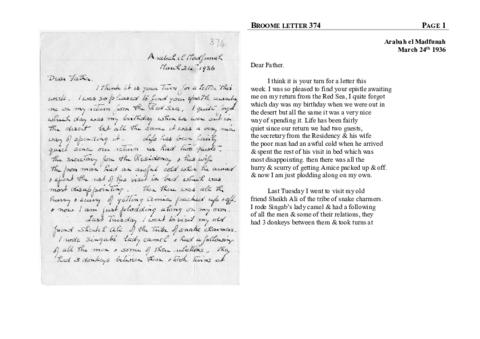 374
Arabah el Madfunah
March 24th 1936
Dear Father.
I think it is your turn for a letter this
week. I was so pleased to find your epistle awaiting
me on my return from the Red Sea, I quite forgot
which day was my birthday when we were out in
the desert but all the same it was a very nice
way of spending it. Life has been fairly
quiet since our return we had two guests,
the secretary from the Residency & his wife
the poor man had an awful cold when he arrived
& spent the rest of his visit in bed which was
most disappointing. then there was all the
hurry & scurry of getting Amice packed up & off.
& now I am just plodding along on my own.
Last Tuesday I went to visit my old
friend Sheikh Ali of the tribe of snake charmers.
I rode Singab's lady camel & had a following
of all the men & some of their relations, they
had 3 donkeys between them & took turns at
BROOME LETTER 374 PAGE 1
Arabah el Madfunah
March 24th 1936
Dear Father.
I think it is your turn for a letter this
week. I was so pleased to find your epistle awaiting
me on my return from the Red Sea, I quite forgot
which day was my birthday when we were out in
the desert but all the same it was a very nice
way of spending it. Life has been fairly
quiet since our return we had two guests,
the secretary from the Residency & his wife
the poor man had an awful cold when he arrived
& spent the rest of his visit in bed which was
most disappointing. then there was all the
hurry & scurry of getting Amice packed up & off.
& now I am just plodding along on my own.
Last Tuesday I went to visit my old
friend Sheikh Ali of the tribe of snake charmers.
I rode Singab's lady camel & had a following
of all the men & some of their relations, they
had 3 donkeys between them & took turns at